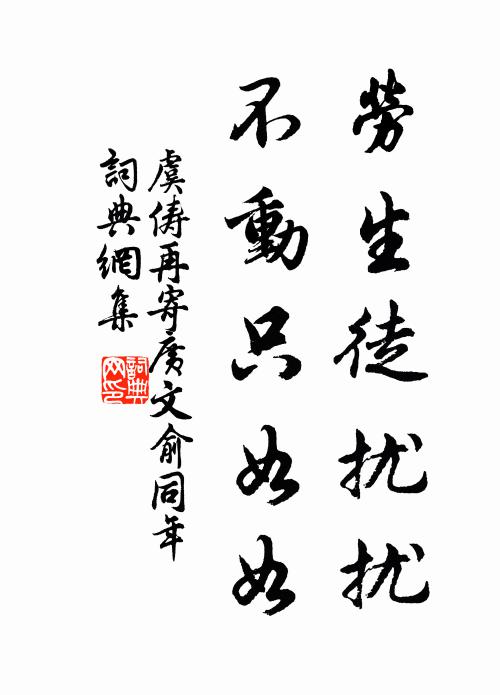 勞生徒扰扰
不動只如如
虞儔再寄廣文俞同年
詞典網集
詞典网印